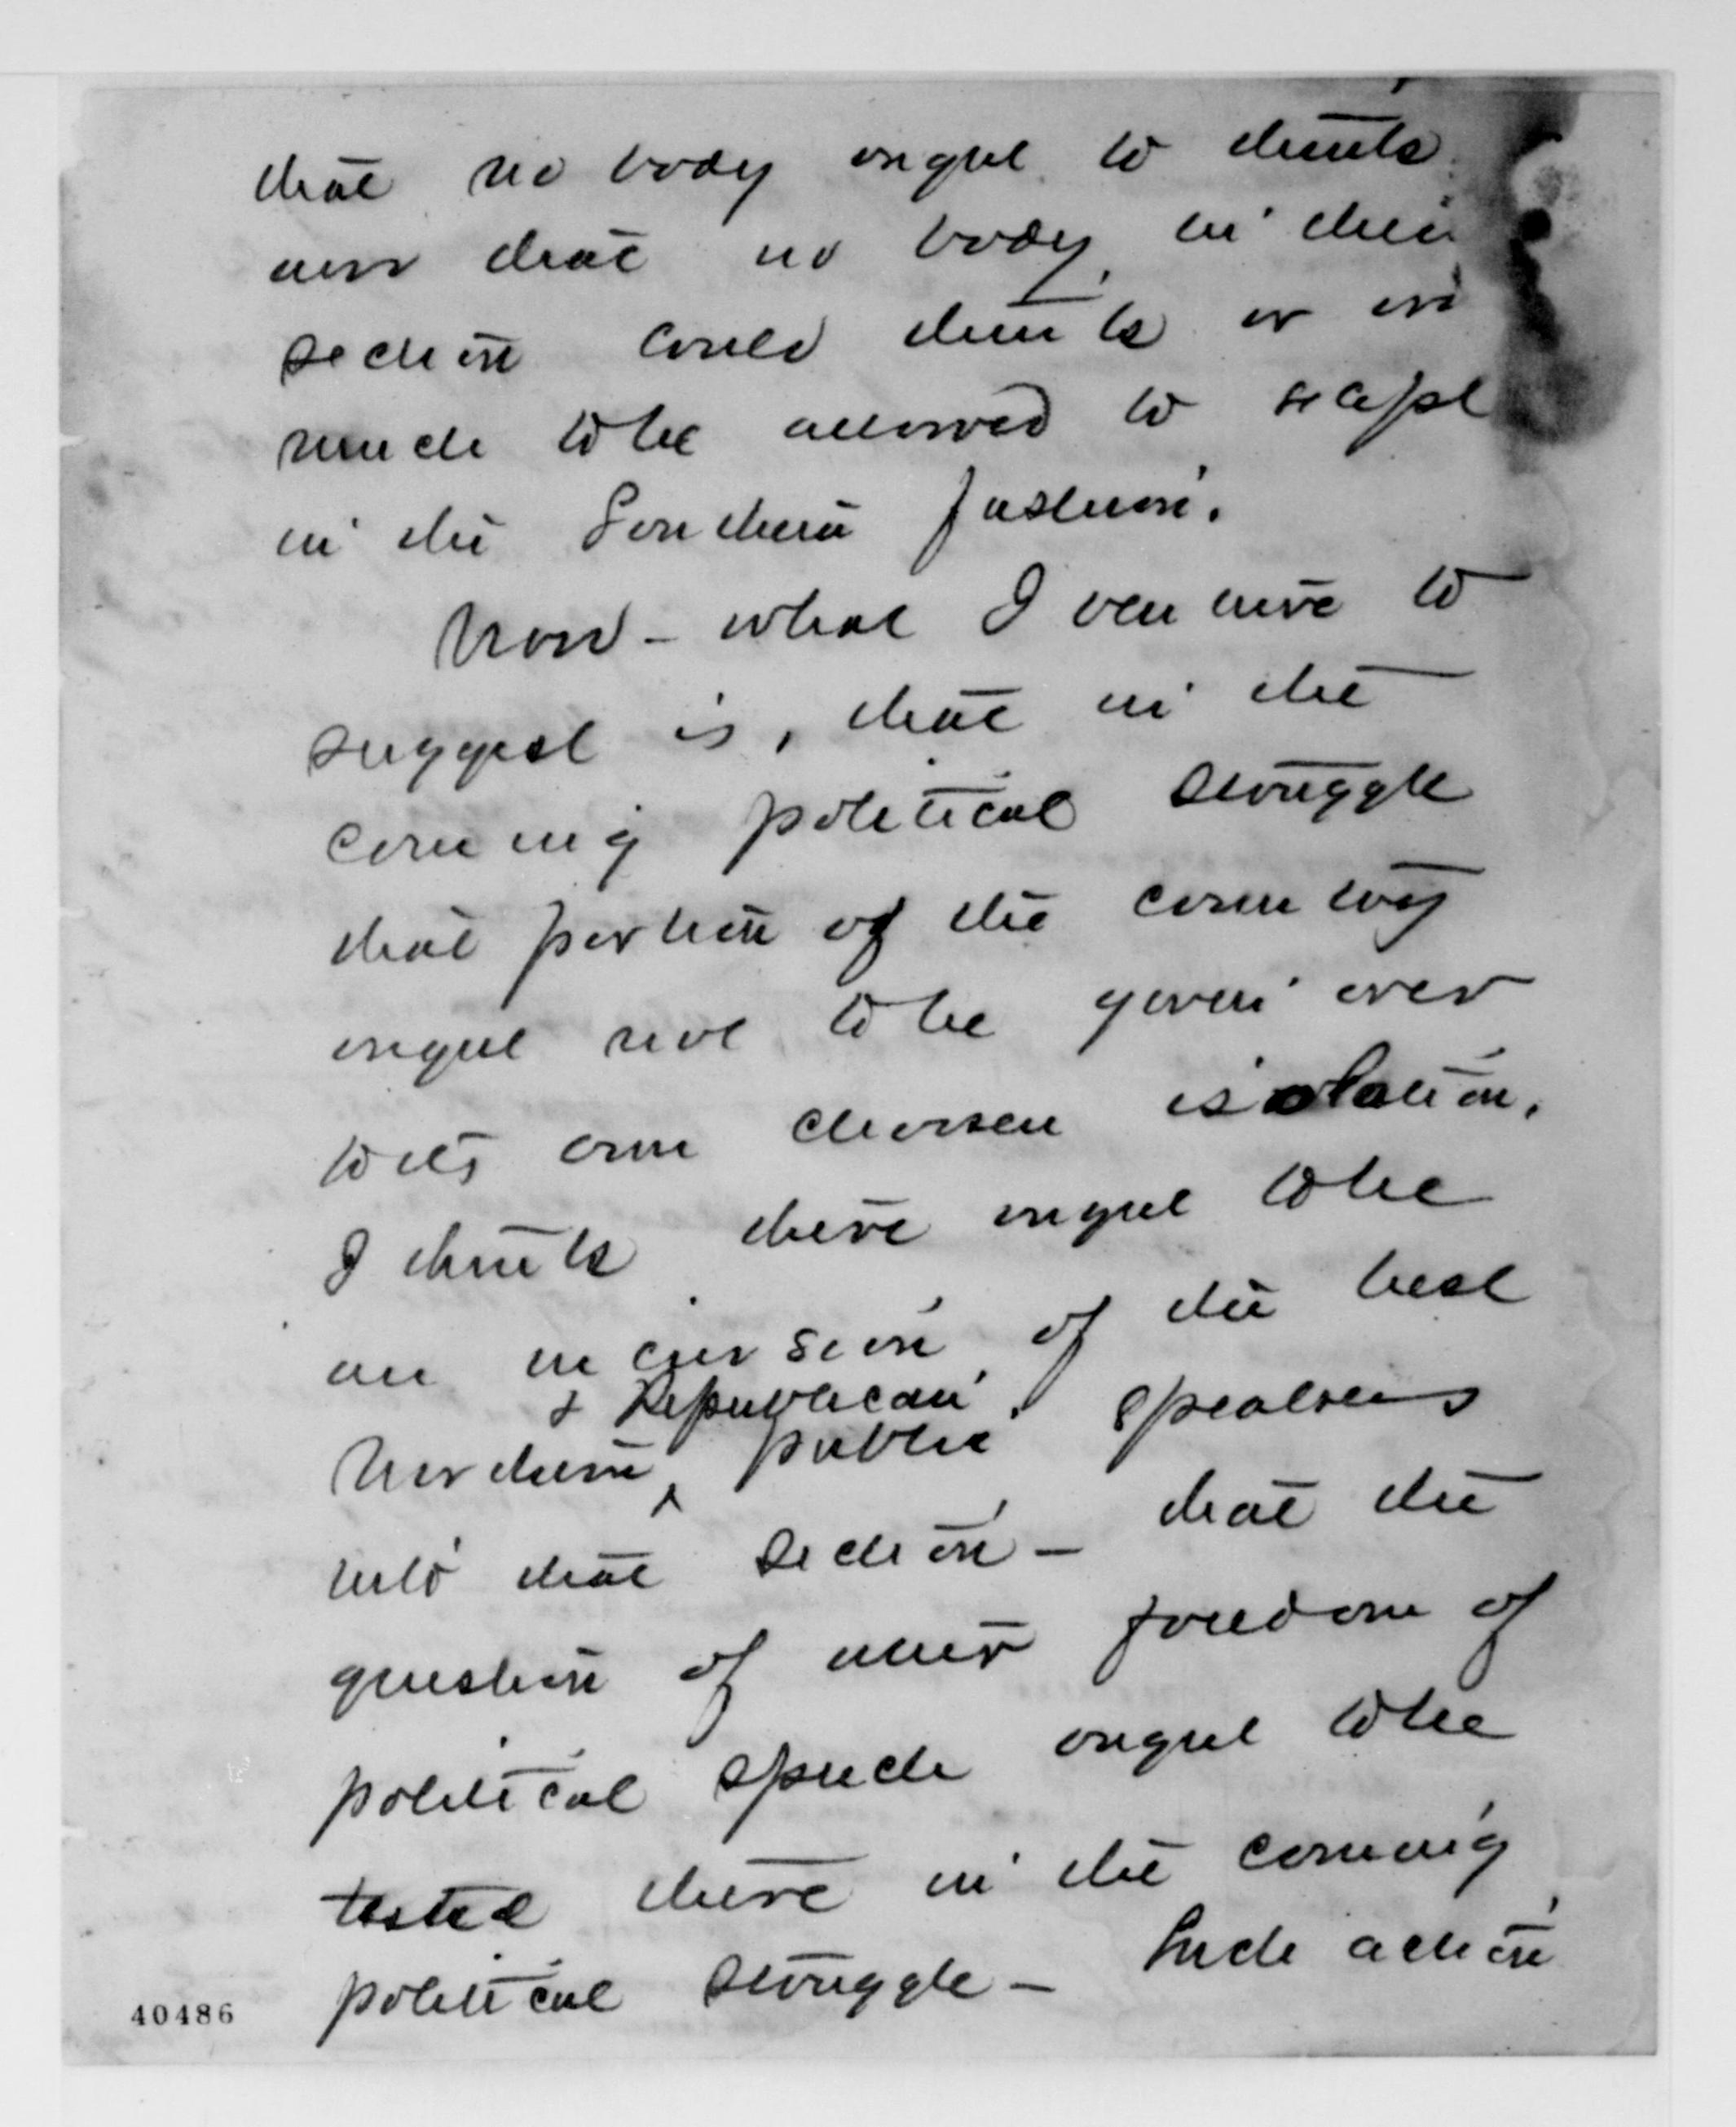 that no body ought to think
nor that no body, in their
section could think or
much to be allowed to
in the Southern fashion.
Now - what I venture to
suggest is, that in the
coming political struggle
that portion of the country
ought not to be given over
to its own chosen isolation.
I think there ought to be
an incursion of the best
& Republican
Northern ^ public speakers
into that section - that the
question of utter freedom of
political speech ought to be
tested there in the coming
political struggle - Such action
40486